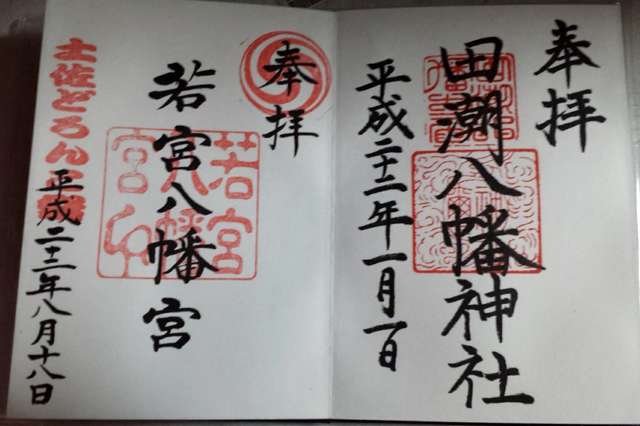 奉拝
田潮八幡神社
平成二十二年一月一日
奉拝
若宮八幡宮
若宮八幡宮印
土佐どろん
平成二十二年八月十八日